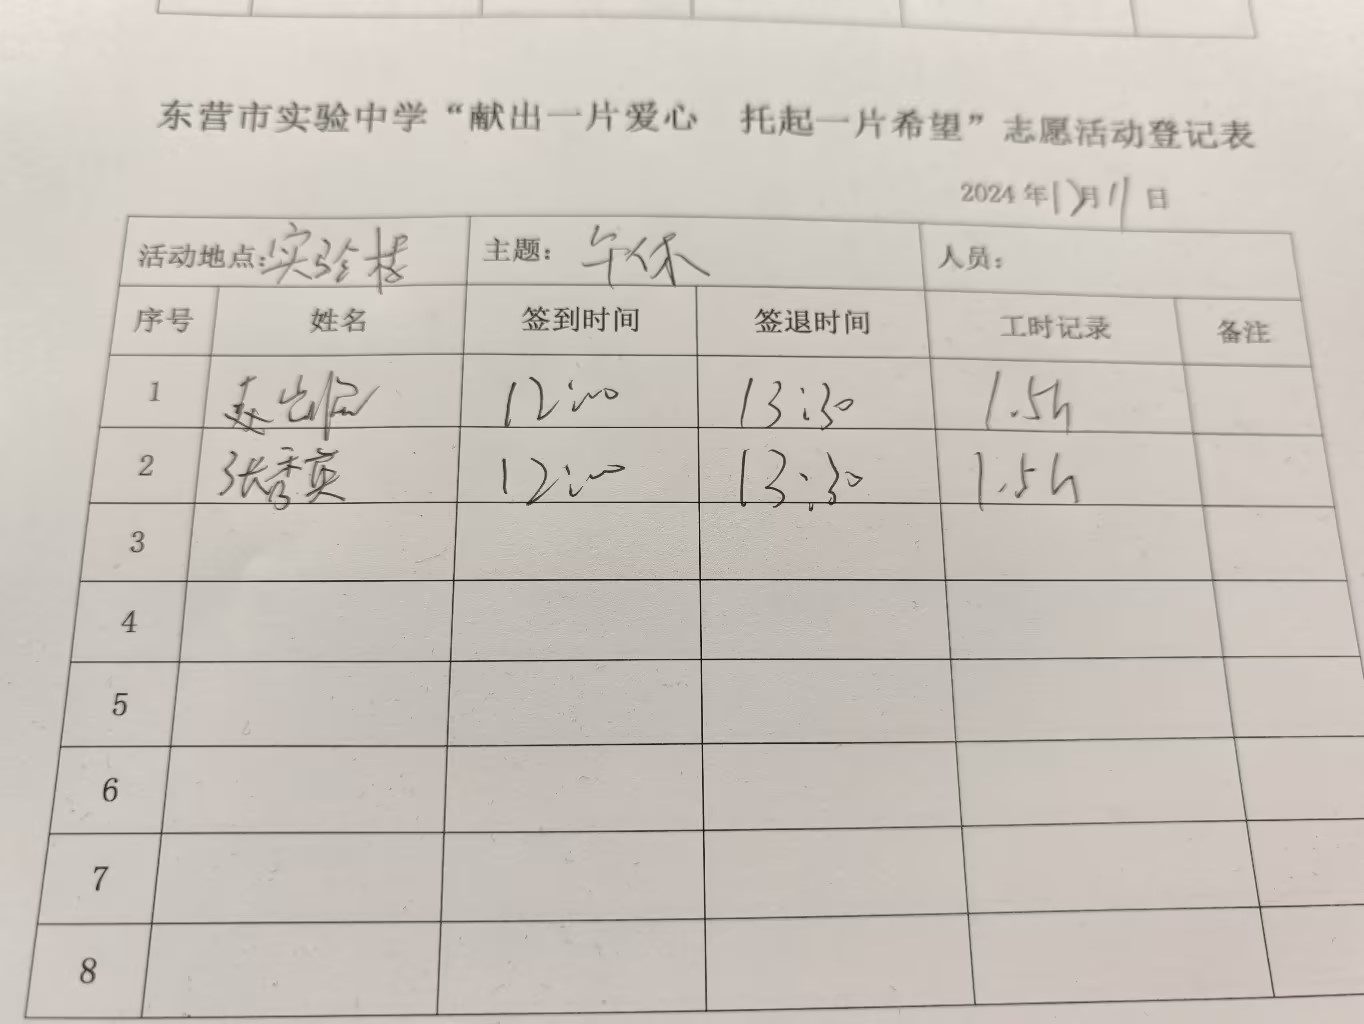 东营市实验中学“献出一片爱心 托起一片希望”志愿活动登记表
2024年12月11日
活动地点:实验楼 主题:午休 人员:
序号 姓名 签到时间 签退时间 工时记录 备注
1 12:00 13:30 1.5h
2 张秀英 12:00 13:30 1.5h
3
4
5
6
7
8